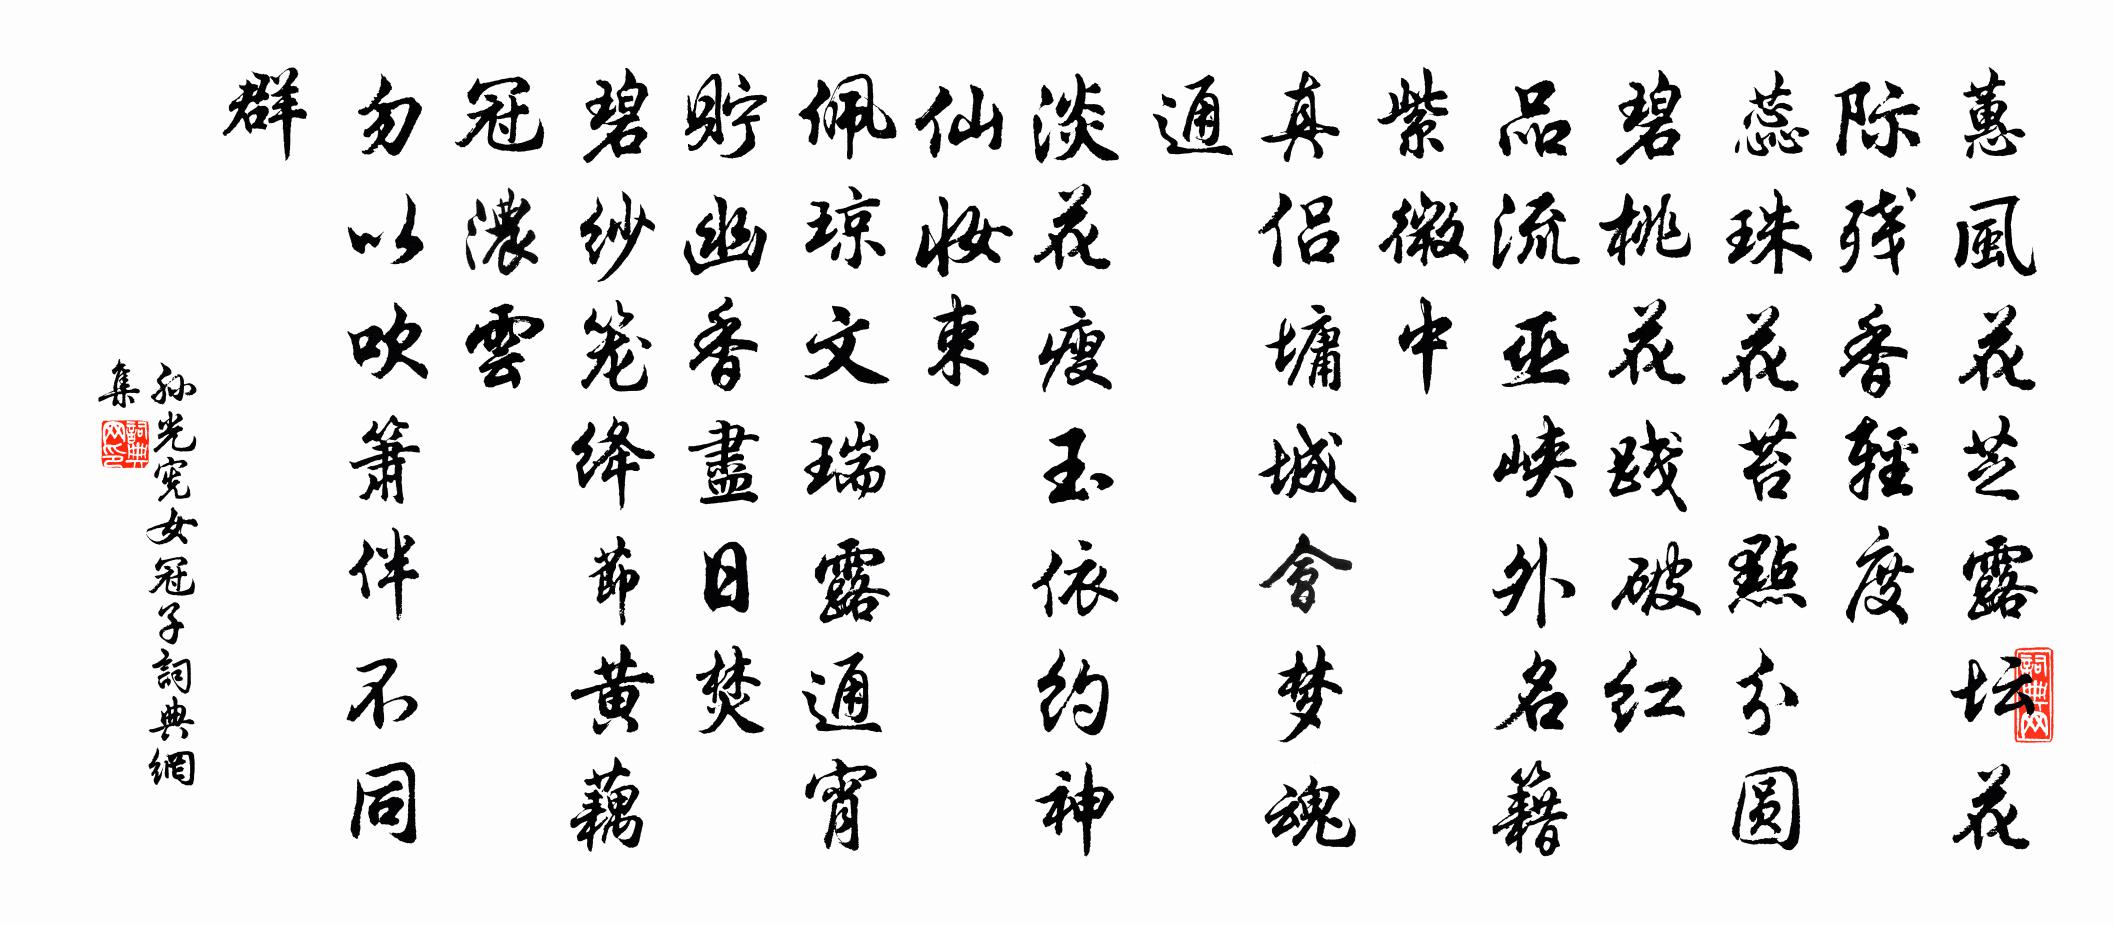 蕙風花芝露坛花
际残香輕度
蕊珠花苔點分圆
碧桃花践破红
品流巫峡外名籍
紫微中
真侣墉城會梦魂
通
淡花瘦玉依约神
仙妝束
佩琼文瑞露通宵
貯幽香盡日焚
碧纱笼绛節黄藕
冠濃雲
勿以吹簫伴不同
群
孙光宪女冠子詞典網
集
詞典网
詞典网印